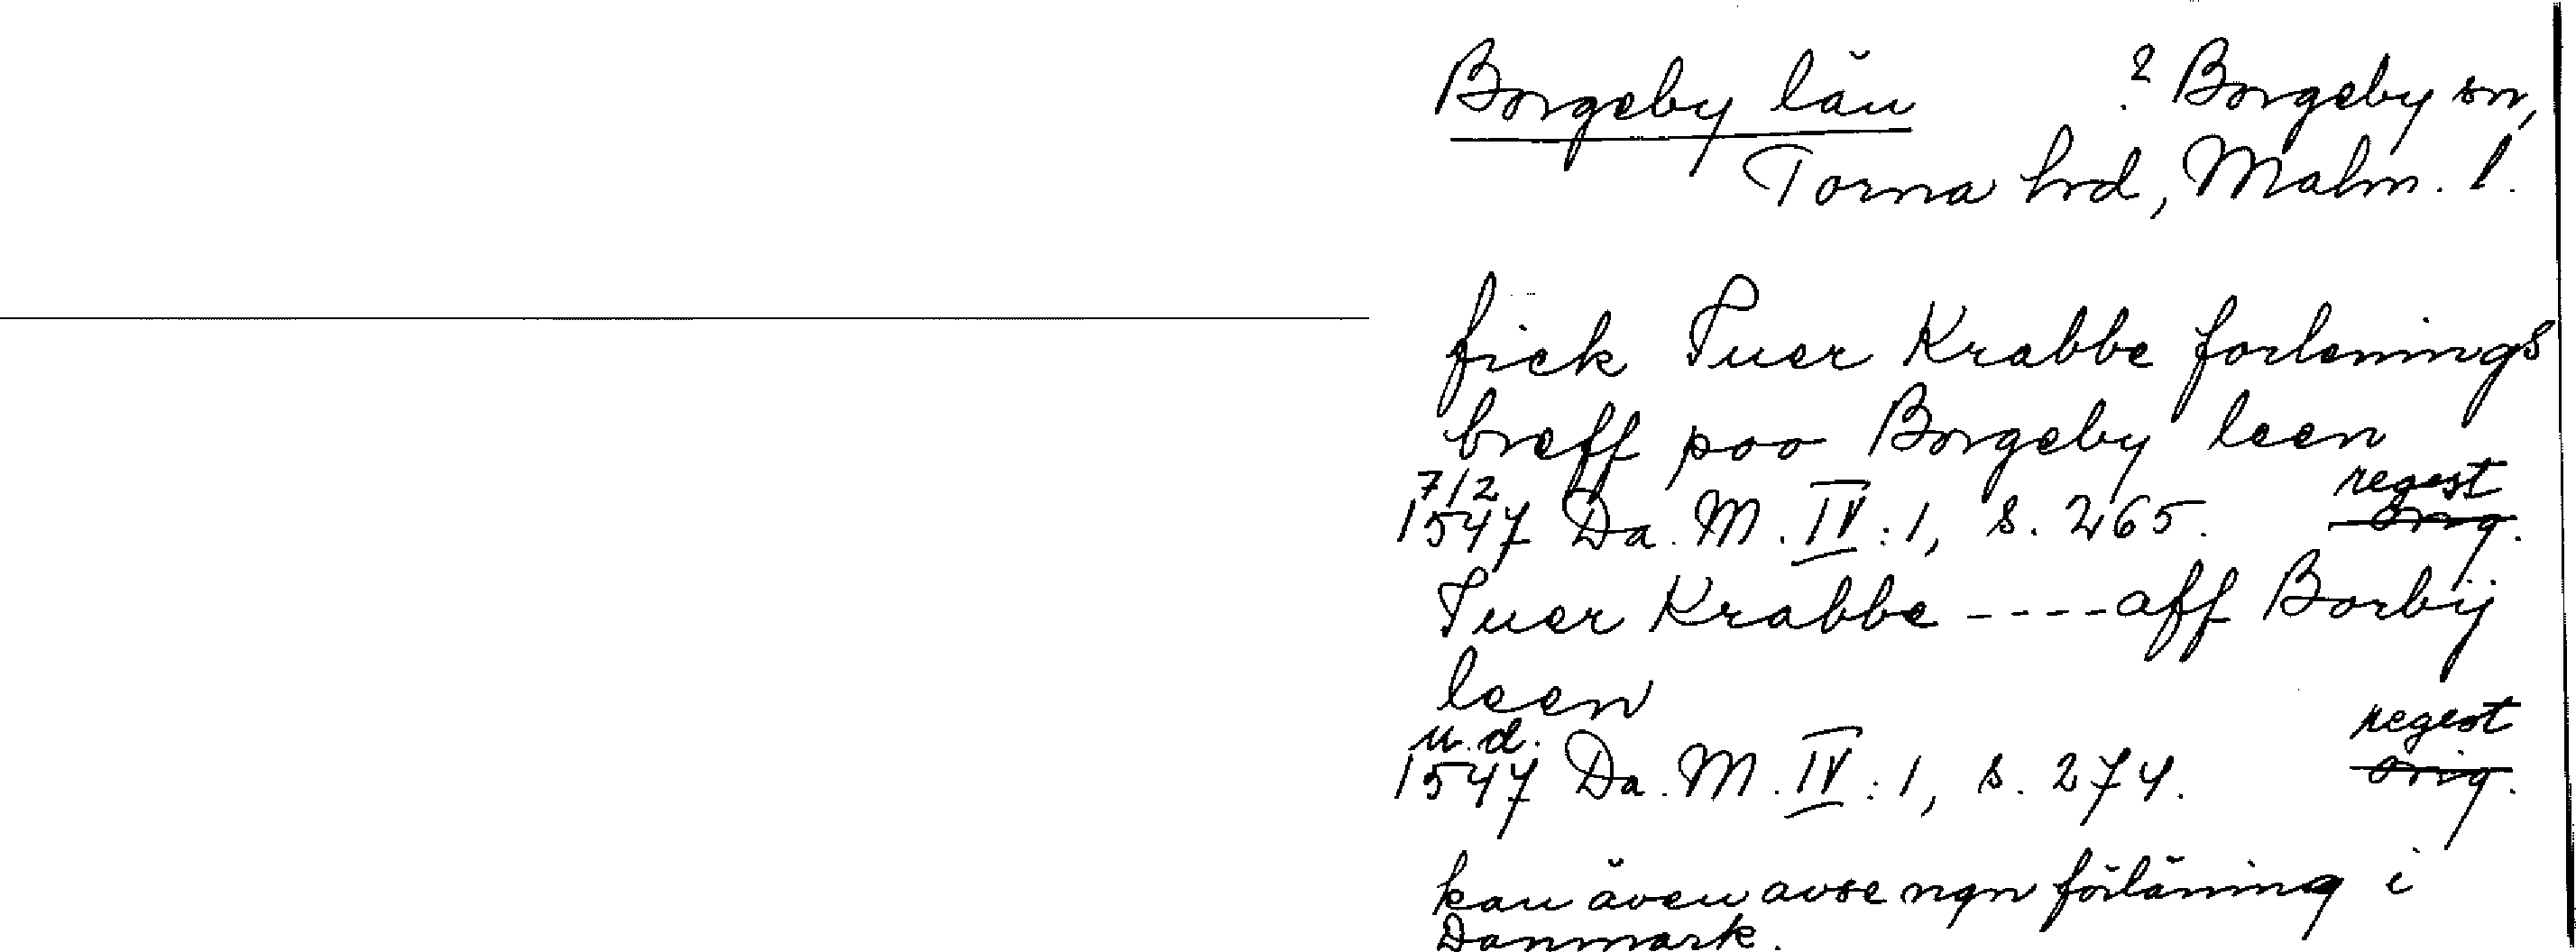 Borgeby län ? Borgeby sn,
Torna hrd, Malm. l.
fick Iuer Krabbe forlenings
breff poo Borgeby leen
7/2 regest
1547 Da. M. IV:1, s. 265. orig.
Iuer Krabbe ---- aff Borbÿ
leen
u.d. regest
1547 Da. M. IV:1, s. 274. orig.
kan även avse ngn förläning i
Danmark.